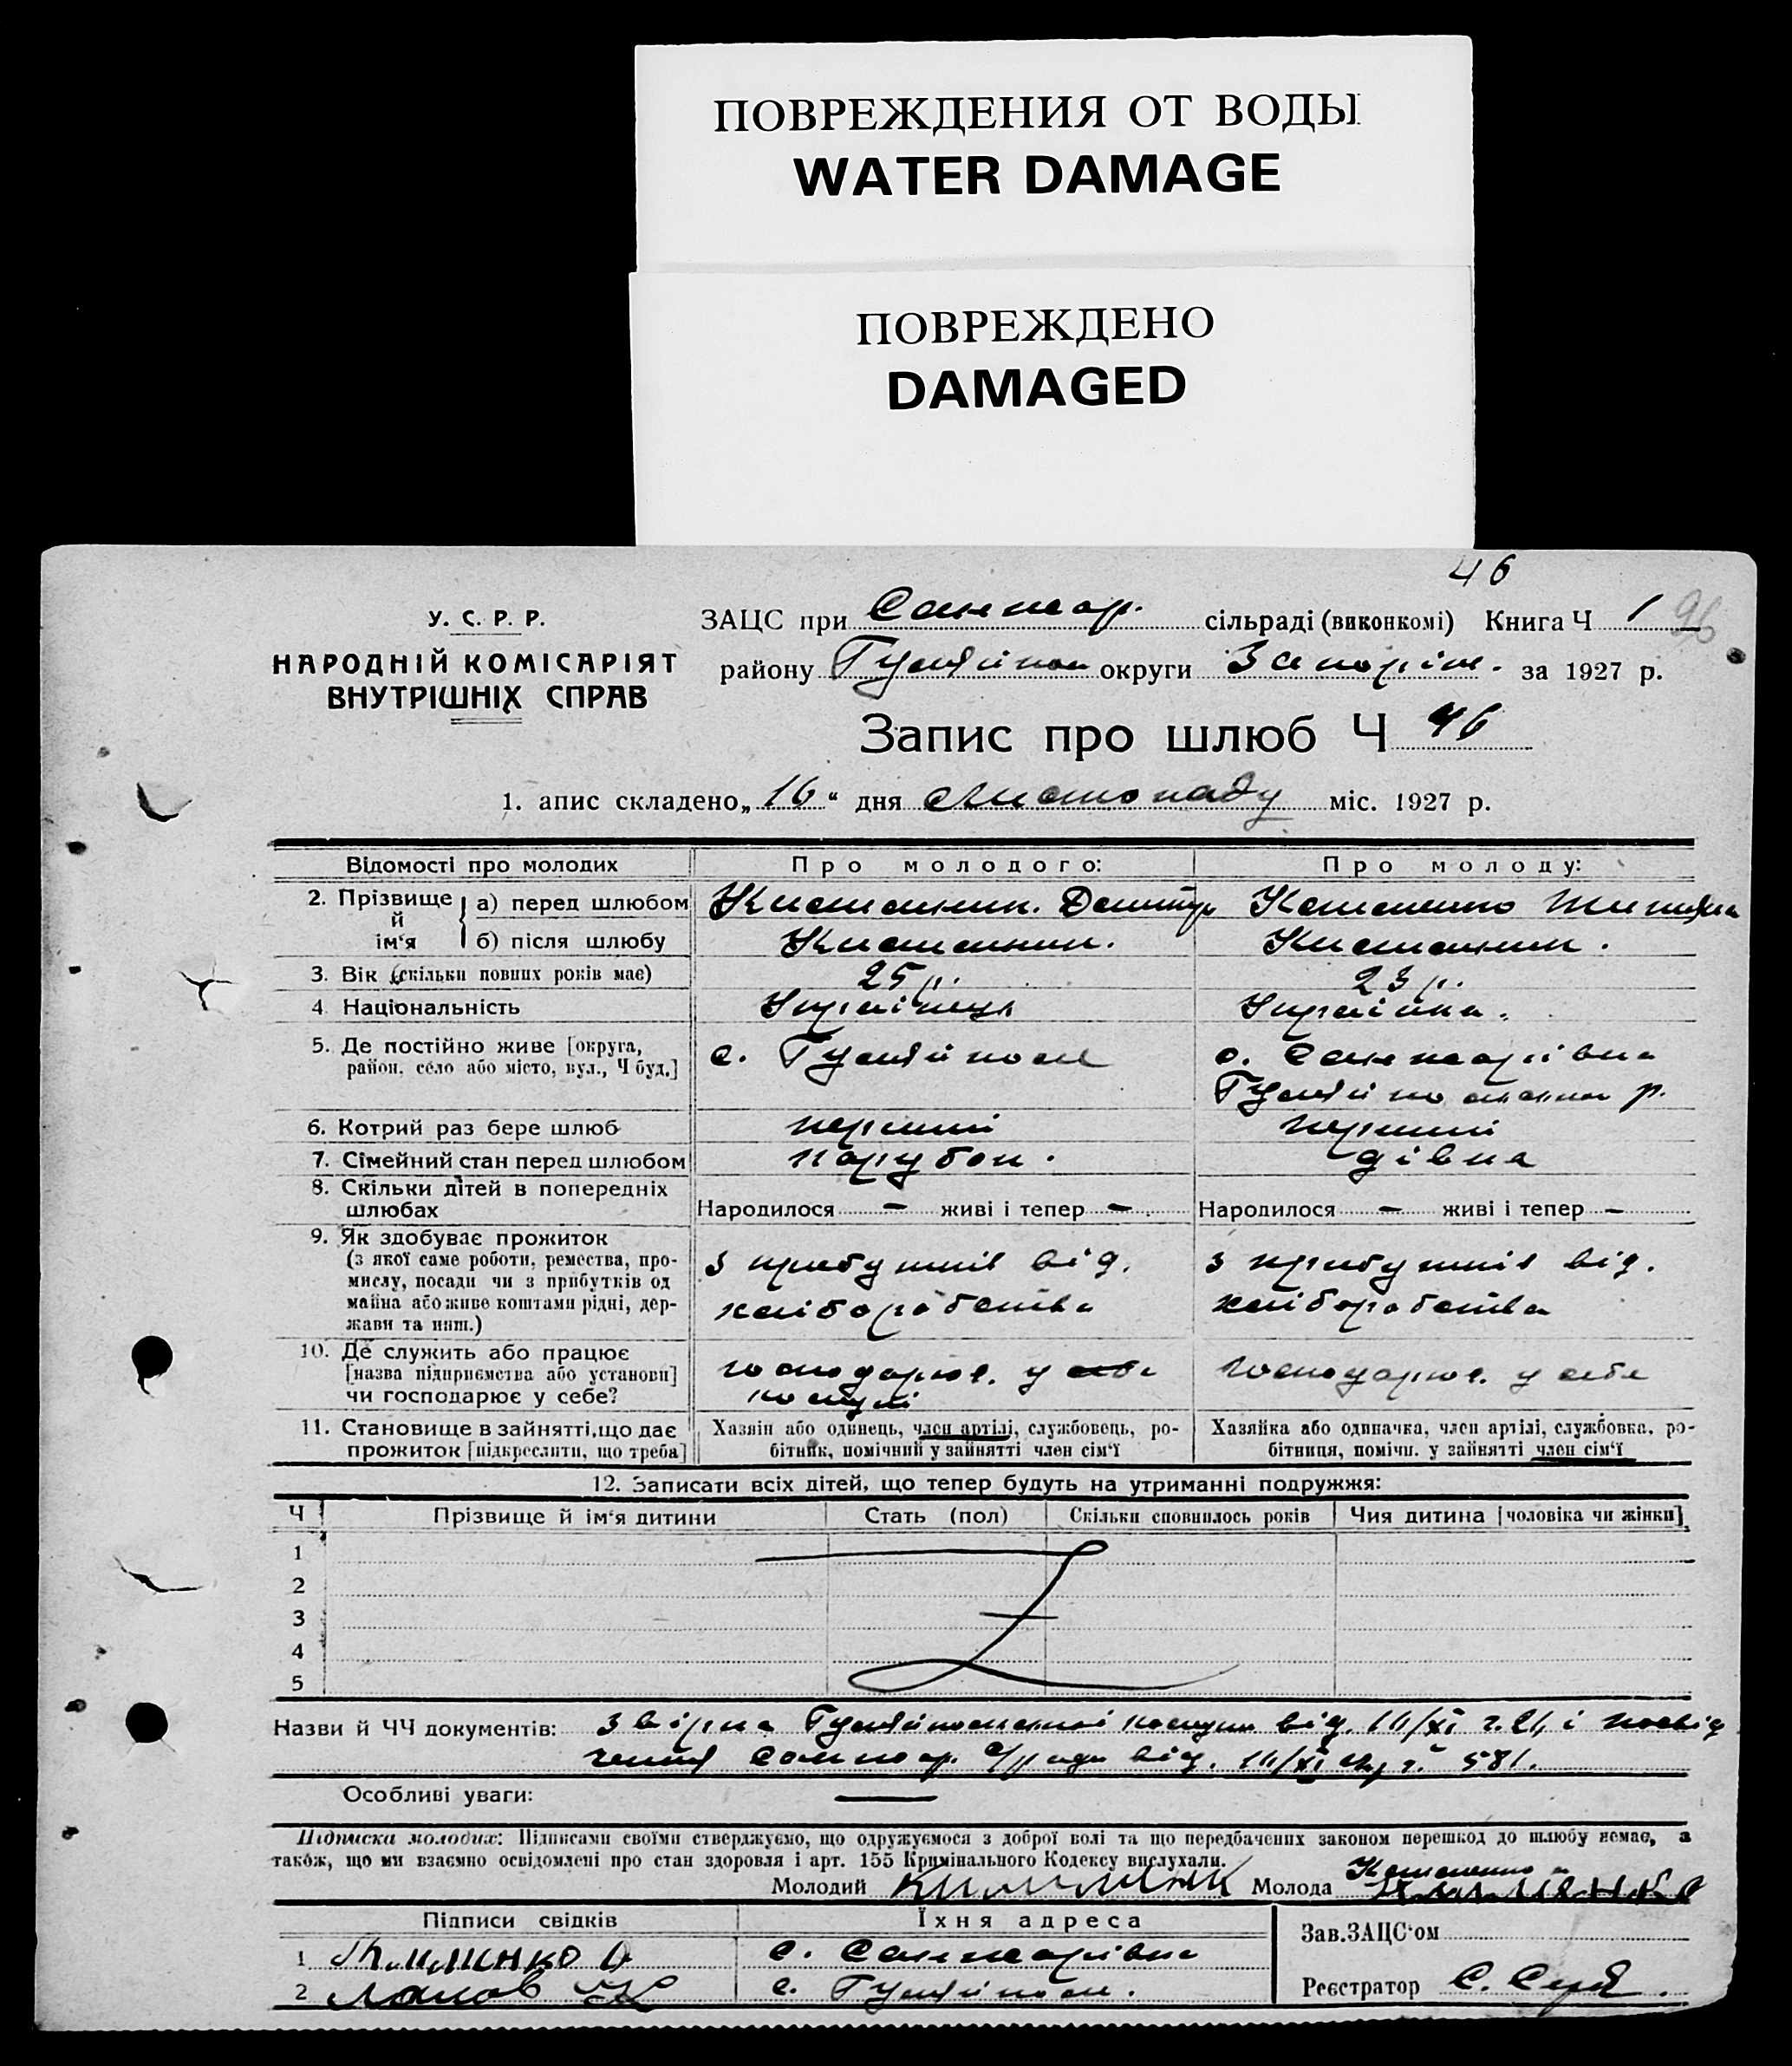 ПОВРЕЖДЕНИЯ ОТ ВОДЫ
WATER DAMAGE
ПОВРЕЖДЕНО
DAMAGED
46
У. С. Р. Р.
НАРОДНІЙ КОМІСАРІЯТ
ВНУТРІШНІХ СПРАВ
ЗАЦС при Санжар. сільраді (виконкомі) Книга Ч 1 96
району Гуляйпол округи Запоріж. за 1927 р.
Запис про шлюб Ч 46
1. апис складено „ 16 “ дня Листопаду міс. 1927 р.
Відомості про молодих Про молодого: Про молоду:
2. Прізвище й ім‘я а) перед шлюбом
б) після шлюбу
3. Вік (скільки повних років має) 25 р. 23 р.
4 Національність Українець Українка.
5. Де постійно живе [округа, район, село або місто, вул., Ч буд.] с. Гуляйполе с. Санжарівка
Гуляйпольськ р.
6. Котрий раз бере шлюб перший перший
7. Сімейний стан перед шлюбом парубок. дівка
8. Скільки дітей в попередніх шлюбах Народилося — живі і тепер — Народилося — живі і тепер —
9. Як здобуває прожиток
(з якої саме роботи, ремества, промислу, посади чи з прибутків од майна або живе коштами рідні, держави та инш.) з прибутків від. хліборобства з прибутків від. хліборобства
10. Де служить або працює
[назва підприємства або установи]
чи господарює у себе? господарює. у господарює. у себе
11. Становище в зайнятті, що дає прожиток [підкреслити, що треба] Хазяїн або одинець, член артілі, службовець, робітник, помічний у зайнятті член сім‘ї Хазяйка або одиначка, член артілі, службовка, робітниця, помічн. у зайнятті член сім‘ї
12. Записати всіх дітей, що тепер будуть на утриманні подружжя:
Ч Прізвище й ім‘я дитини Стать (пол) Скільки сповнилось років Чия дитина [чоловіка чи жінки]
1
2
3
4
5
Назви й ЧЧ документів: Гуляйпольської від. і посвід
чення Санжар. с/ради від. 581.
Особливі уваги: —
Підписка молодих: Підписами своїми стверджуємо, що одружуємося з доброї волі та що передбачених законом перешкод до шлюбу немає, а
також, що ми взаємно освідомлені про стан здоровля і арт. 155 Кримінального Кодексу вислухали.
Молодий Молода
Підписи свідків Їхня адреса Зав. ЗАЦС‘ом
1 с. Санжарівка
2 с. Гуляйполе. Реєстратор